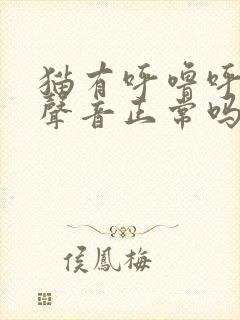 猫有呼噜呼
聲音正常吗
侯鳳梅